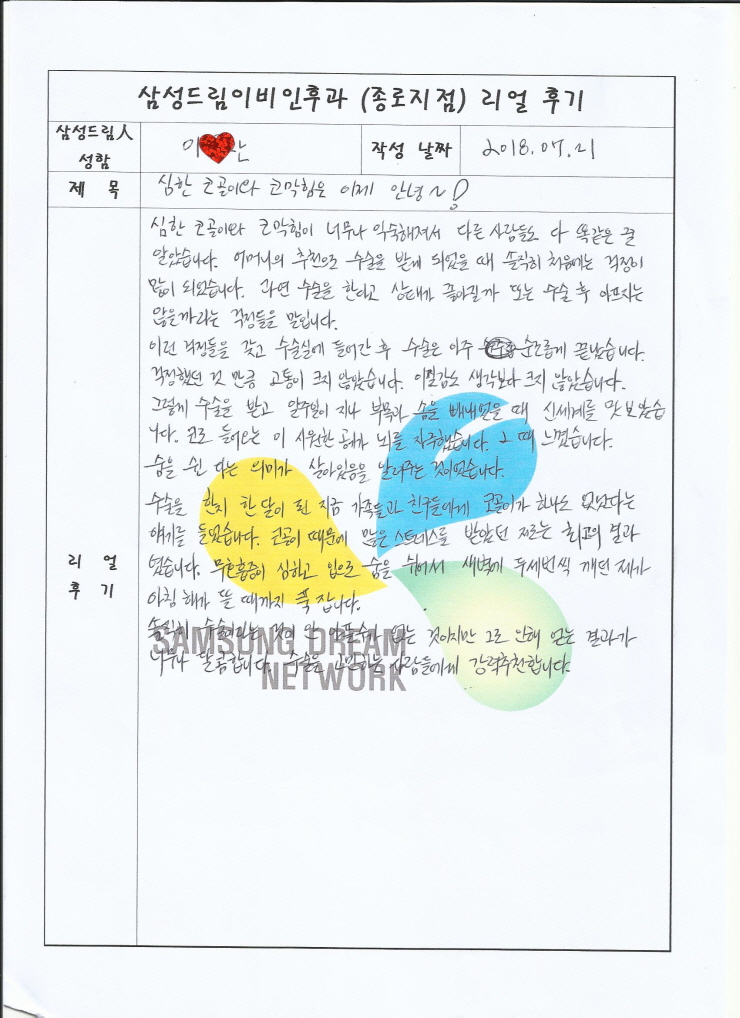 삼성드림이비인후과 (종로지점) 리얼 후기
삼성드림人 성함
이 안
작성 날짜
2018.07.21
제 목
심한 코골이와 코막힘은 이제 안녕~!
리 얼
후 기
심한 코골이와 코막힘이 너무나 익숙해져서 다른 사람들도 다 똑같은 줄
알았습니다. 어머니의 추천으로 수술을 받게 되었을 때 솔직히 처음에는 걱정이
많이 되었습니다. 과연 수술을 한다고 상태가 좋아질까 또는 수술 후 아프지는
않을까라는 걱정들을 말입니다.
이런 걱정들을 갖고 수술실에 들어간 후 수술은 아주 순조롭게 끝났습니다.
걱정했던 것 만큼 고통이 크지 않았습니다. 이질감도 생각보다 크지 않았습니다.
그렇게 수술을 받고 일주일이 지나 부목과 솜을 빼내었을 때 신세계를 맛보았습
니다. 코로 들어오는 이 시원한 공기가 뇌를 자극했습니다. 그 때 느꼈습니다.
숨을 쉰 다는 의미가 살아있음을 알려주는 것이었습니다.
수술을 한지 한달이 된 지금 가족들과 친구들에게 코골이가 하나도 없었다는
얘기를 들었습니다. 코골이 때문에 많은 스트레스를 받았던 저로는 최고의 결과
였습니다. 무호흡증이 심하고 입으로 숨을 쉬어서 새벽에 두세번씩 깨던 제가
아침 해가 뜰 때까지 푹 잡니다.
솔직히 수술이라는 것이 안 아플수가 없는 것이지만 그로 인해 얻는 결과가
너무나 달콤합니다. 수술을 고민하는 사람들에게 강력추천합니다.
SAMSUNG DREAM
NETWORK